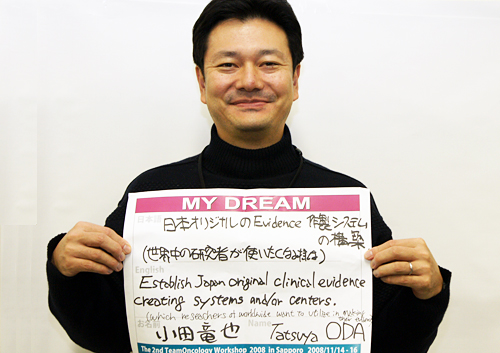 MY DREAM
日本語
日本オリジナルのEvidence 作製システム
の構築
(世界中の研究者が使いたくなる様な)
English
Establish Japan original clinical evidence
creating systems and/or centers.
(which researchers of worldwide want to utilize in making
their
お名前 小田竜也 Name Tatsuya ODA
The 2nd TeamOncology Workshop 2008 in Sapporo 2008/11/14 - 16